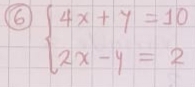 ⑥ { 4x + y = 10
2x - y = 2